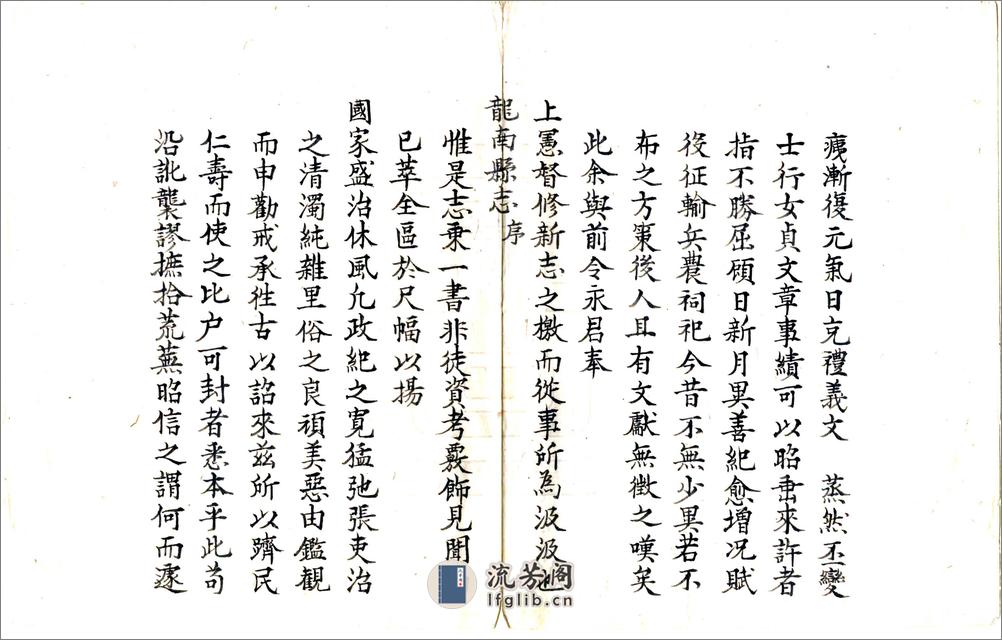 痍漸復元氣日充禮義文 蒸然丕變
士行女貞文章事績可以昭垂來許者
指不勝屈顾日新月異善紀愈增况賦
役征輸兵農祠祀今昔不無少異若不
布之方策後人且有文獻無徴之嘆矣
此余與前令永君奉
上憲督修新志之檄而從事所為汲汲也
龍南縣志 序
惟是志乘一書非徒資考覈飾見聞
已萃全區於尺幅以揚
國家盛治休風凢政紀之寛猛弛張吏治
之清濁純雜里俗之良頑美惡由鑑觀
而申勸戒承徃古以詔來兹所以躋民
仁壽而使之比户可封者悉本乎此苟
沿訛襲謬摭拾荒蕪昭信之謂何而遂
流芳阁
lfglib.cn